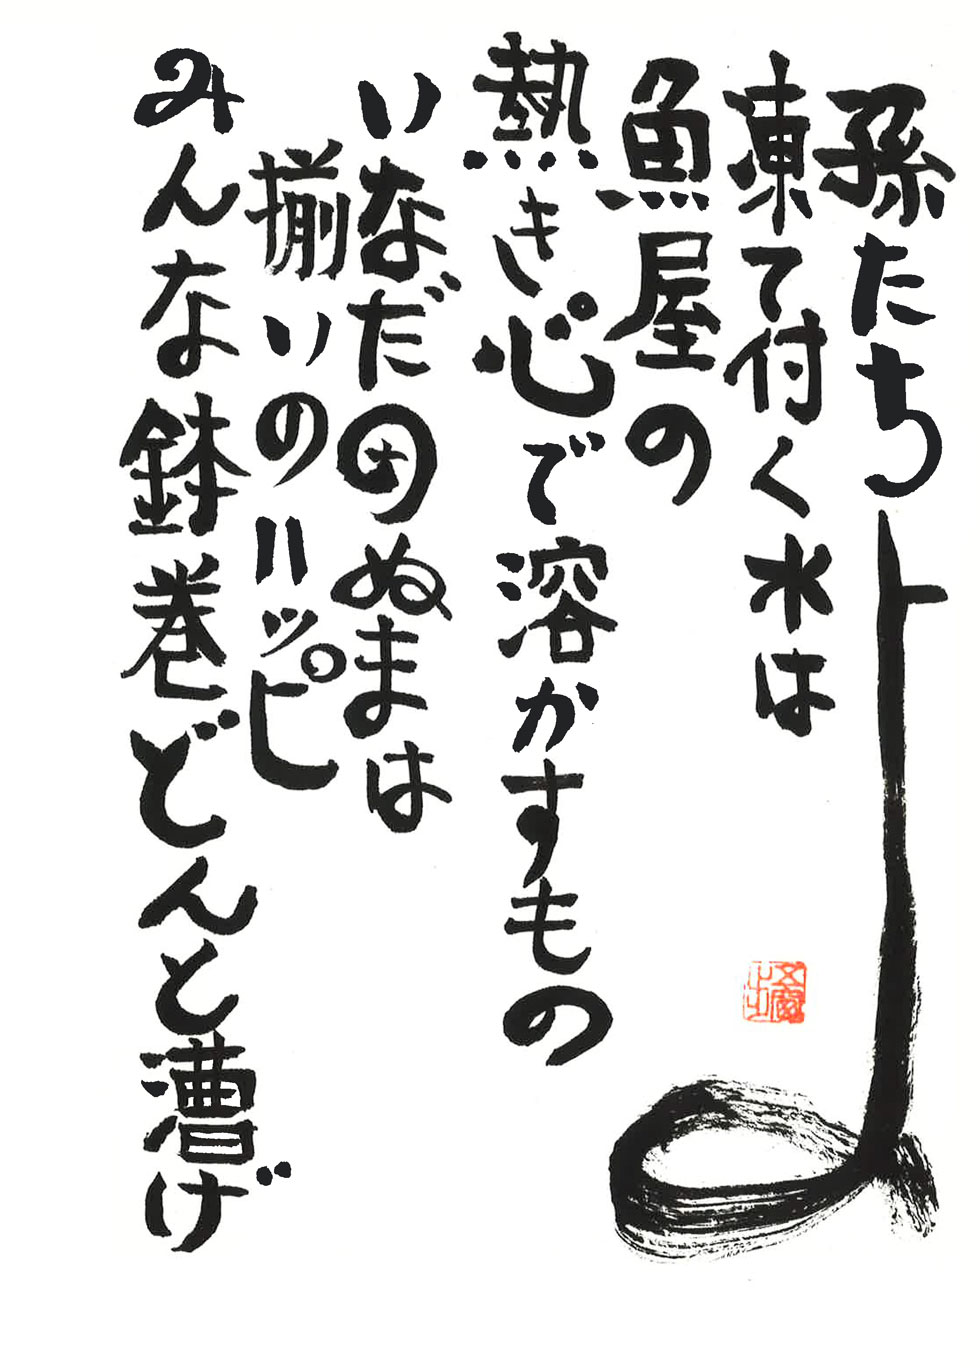 孫たちよ
凍て付く水は
魚屋の
熱き心で溶かすもの
いなだのぬまは
揃いのハッピ
みんな鉢巻どんと漕げ